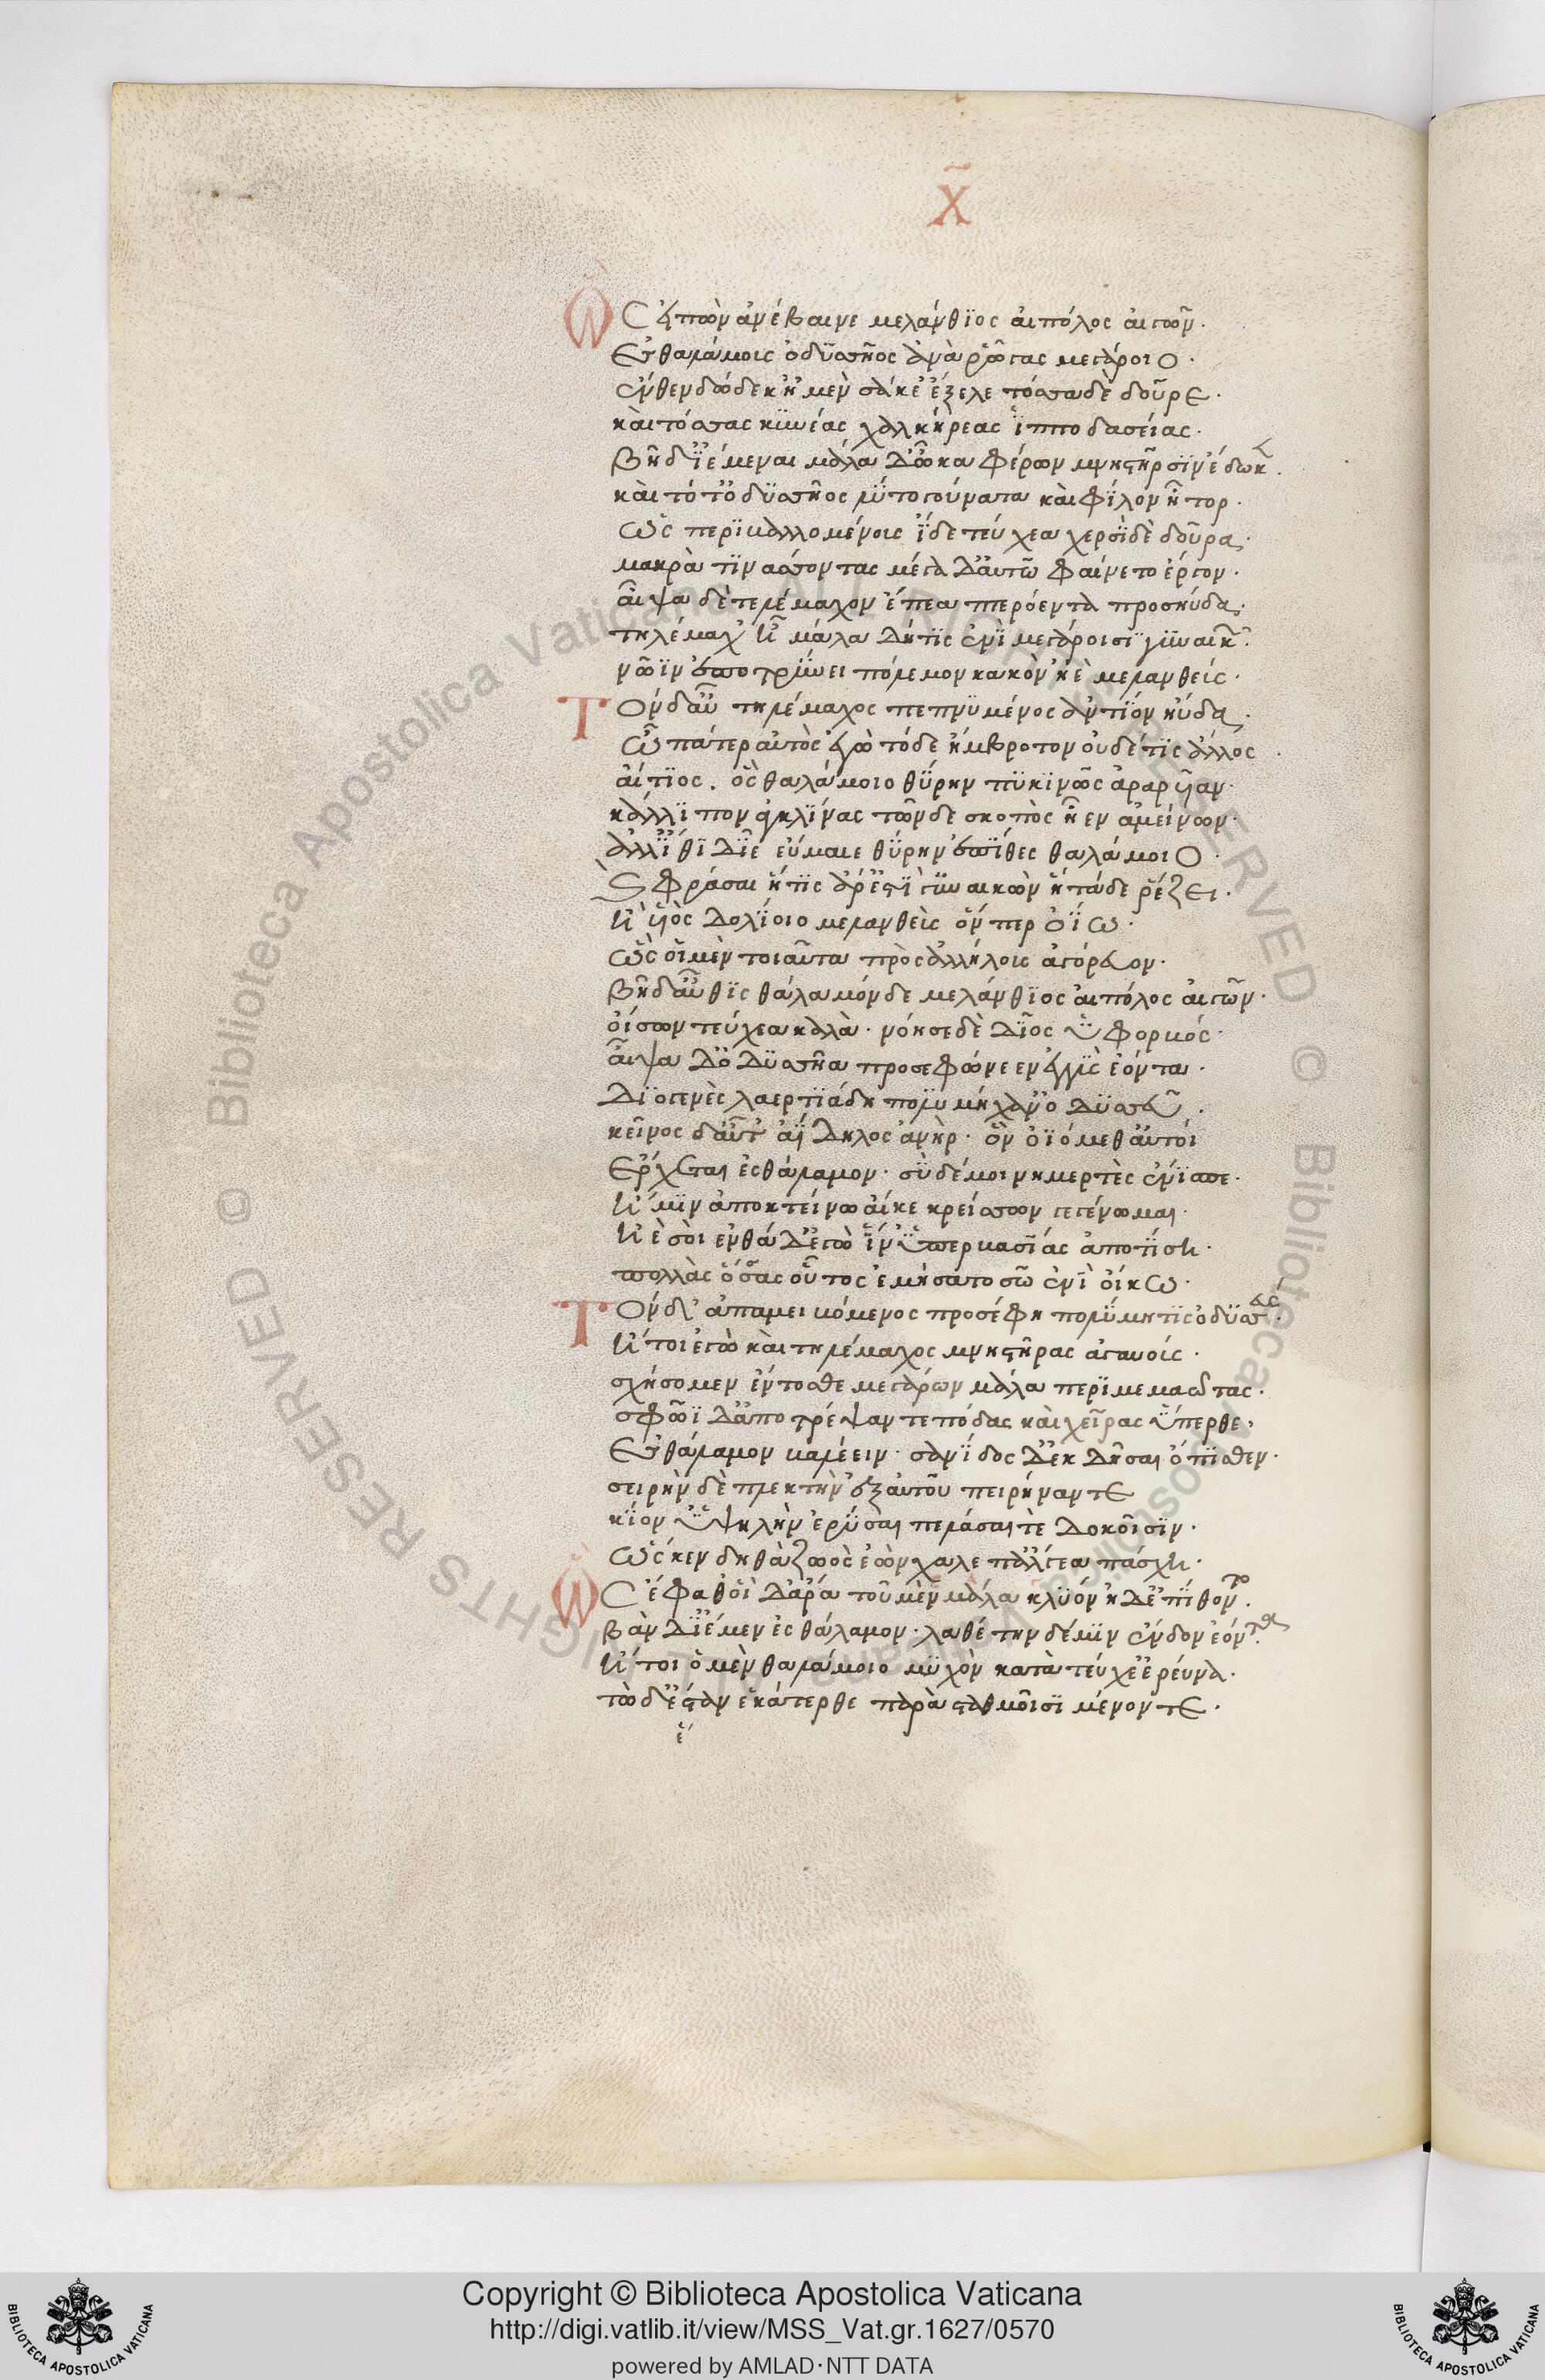 χ̃
Ὣς εἰπὼν ἀνέβαινε μελάνθϊος αἰπόλος αἰγῶν·
Ἐς θαλάμοις ὀδϋσσῆος ἀνὰ ῥῶγας μεγάροιο·
ἔνθεν δώδεκ' ἢ μὲν σάκε' ἔξελε τόσσα δὲ δοῦρε·
καὶ τόσσας κϋνέας χαλκήρεας ἵπποδασείας·
Βῆ δ' ἴ̈έμεναι μάλα δ' ὦκα φέρων μνηστῆρσϊν ἔδωκε·
καὶ τότ' ὀδϋσσῆος λύτο γούνατα καὶ φϊλον ἦτορ·
Ὡς περϊβαλλομένοις ἴδε τεύχεα χερσὶ δὲ δοῦρα·
μακρὰ τϊνάσσοντας μέγα δ' αὐτῶ φαίνετο ἔργον·
αἶψα δὲ τηλέμαχον ἔπεα πτερόεντα προσηύδα·
τηλέμαχ' ἦ μάλα δήτϊς ἐνὶ μεγάροισϊ γϋναικῶν·
νῶϊν ἐποτρύνει πόλεμον κακὸν ἠὲ μελανθείς·
Τὸν δ' αὖ τηλέμαχος πεπνϋμένος ἀντϊον ηὔδα·
Ὦ πάτερ αὐτὸς ἐγὼ τόδε ἤμβροτον οὐδέ τϊς ἄλλος·
αἴτϊος· ὃς θαλάμοιο θύρην πϋκϊνῶς ἀραρυῖαν·
κάλλϊπον ἀγκλίνας τῶν δε σκοπὸς ἦεν ἀμείνων·
ἀλλ' ἴθϊ δῖε εὔμαιε θύρην ἐπίθες θαλάμοιο·
καὶ φράσαι ἤ τϊς ἄρ' ἐστὶ γϋναικῶν ἣ τάδε ῥέζει·
Ἢ υἱὸς δολΐοιο μελανθεὶς ὅν περ ὀΐω·
Ὣς οἱ μὲν τοιαῦτα πρὸς ἀλλήλοις ἀγόρευον·
Βῆ δ' αὖθϊς θάλαμόνδε μελάνθϊος αἰπόλος αἰγῶν·
οἴσων τεύχεα καλὰ· νόησε δὲ δῖος ὑφορβός·
αἶψα δ' ὀδϋσσῆα προσεφώνεεν ἐγγϋς ἐόντα·
Διογενὲς λαερτϊάδη πολυμήχαν' ὀδϋσσεῦ·
κεῖνος δ' αὖτ' ἀΐδηλος ἀνὴρ· ὃν ὀϊόμεθ' αὐτοί
Ἔρχεται ἐς θάλαμον· σὺ δέ μοι νημερτὲς ἐνίσπε·
Ἤ μϊν ἀποκτείνω αἴ κε κρείσσων γε γένωμαι·
Ἠὲ σοὶ ἐνθάδ' ἐγὼ ἵν' ὑπερβασΐας ἀποτίση·
πολλὰς ὅσσας οὗτος ἐμήσατο σῶ ἐνὶ οἴκω·
Τὸν δ' ἀπαμειβόμενος προσέφη πολύμητϊς ὀδϋσσεύς·
Ἤτοι ἐγὼ καὶ τηλέμαχος μνηστῆρας ἀγαυοίς·
σχήσομεν ἔντοσθε μεγάρων μάλα περϊμεμαῶτας·
σφῶϊ δ' ἀποτρέψαντε πόδας καὶ χεῖρας ὕπερθε·
Ἐς θάλαμον βαλέειν· σανΐδας δ' ἐκδῆσαι ὄπϊσθεν·
σειρὴν δὲ πλεκτὴν ἐξ αὐτοῦ πειρήναντε
κΐον' ὑψηλὴν ἐρύσαι πελάσαι τὲ δοκοῖσϊν·
Ὥς κεν δηθὰ ζωὸς ἐὼν χαλέπ' ἄλγεα πάσχη·
Ὣς ἔφαθ' οἱ δ' ἄρα τοῦ μὲν μάλα κλϋον ἠδ' ἐπΐθοντο·
Βὰν δ' ἴ̈έμεν ἐς θάλαμον· λαθέτην δέ μϊν ἔνδον ἐόντα·
Ἤτοι ὃ μὲν θαλάμοιο μϋχὸν κατὰ τεύχε' ἐρεύνα·
τὼ δ' ἔσταν ἑκάτερθε παρὰ σταθμοῖσϊ μένοντε·
Biblioteca Apostolica Vaticana © ALL RIGHTS RESERVED ©
Copyright © Biblioteca Apostolica Vaticana
http://digi.vatlib.it/view/MSS_Vat.gr.1627/0570
powered by AMLAD·NTT DATA
BIBLIOTECA APOSTOLICA VATICANA
BIBLIOTECA APOSTOLICA VATICANA